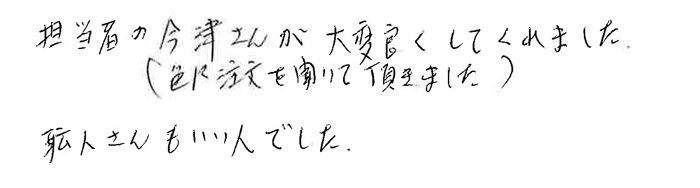 担当者の今津さんが大変良くしてくれました.
(色々注文を聞いて頂きました)
職人さんもいい人でした.